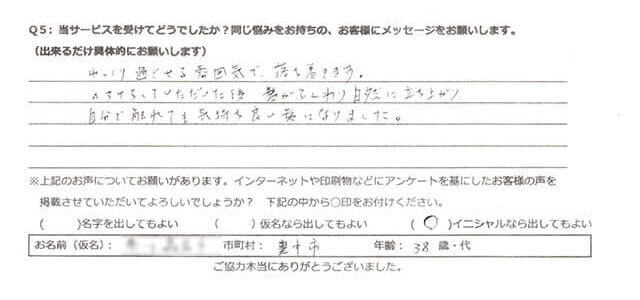 Q5：当サービスを受けてどうでしたか？同じ悩みをお持ちの、お客様にメッセージをお願いします。
（出来るだけ具体的にお願いします）
ゆっくり過ごせる雰囲気で、落ち着きます。
していただいた後 髪がふんわり自然に立ち上がり
自分で触れても気持ち良い髪になりました。
※上記のお声についてお願いがあります。インターネットや印刷物などにアンケートを基にしたお客様の声を
掲載させていただいてよろしいでしょうか？ 下記の中から○印をお付けください。
（ ）名字を出してもよい （ ）仮名なら出してもよい （○）イニシャルなら出してもよい
お名前（仮名）： 市町村：豊中市 年齢：38歳・代
ご協力本当にありがとうございました。